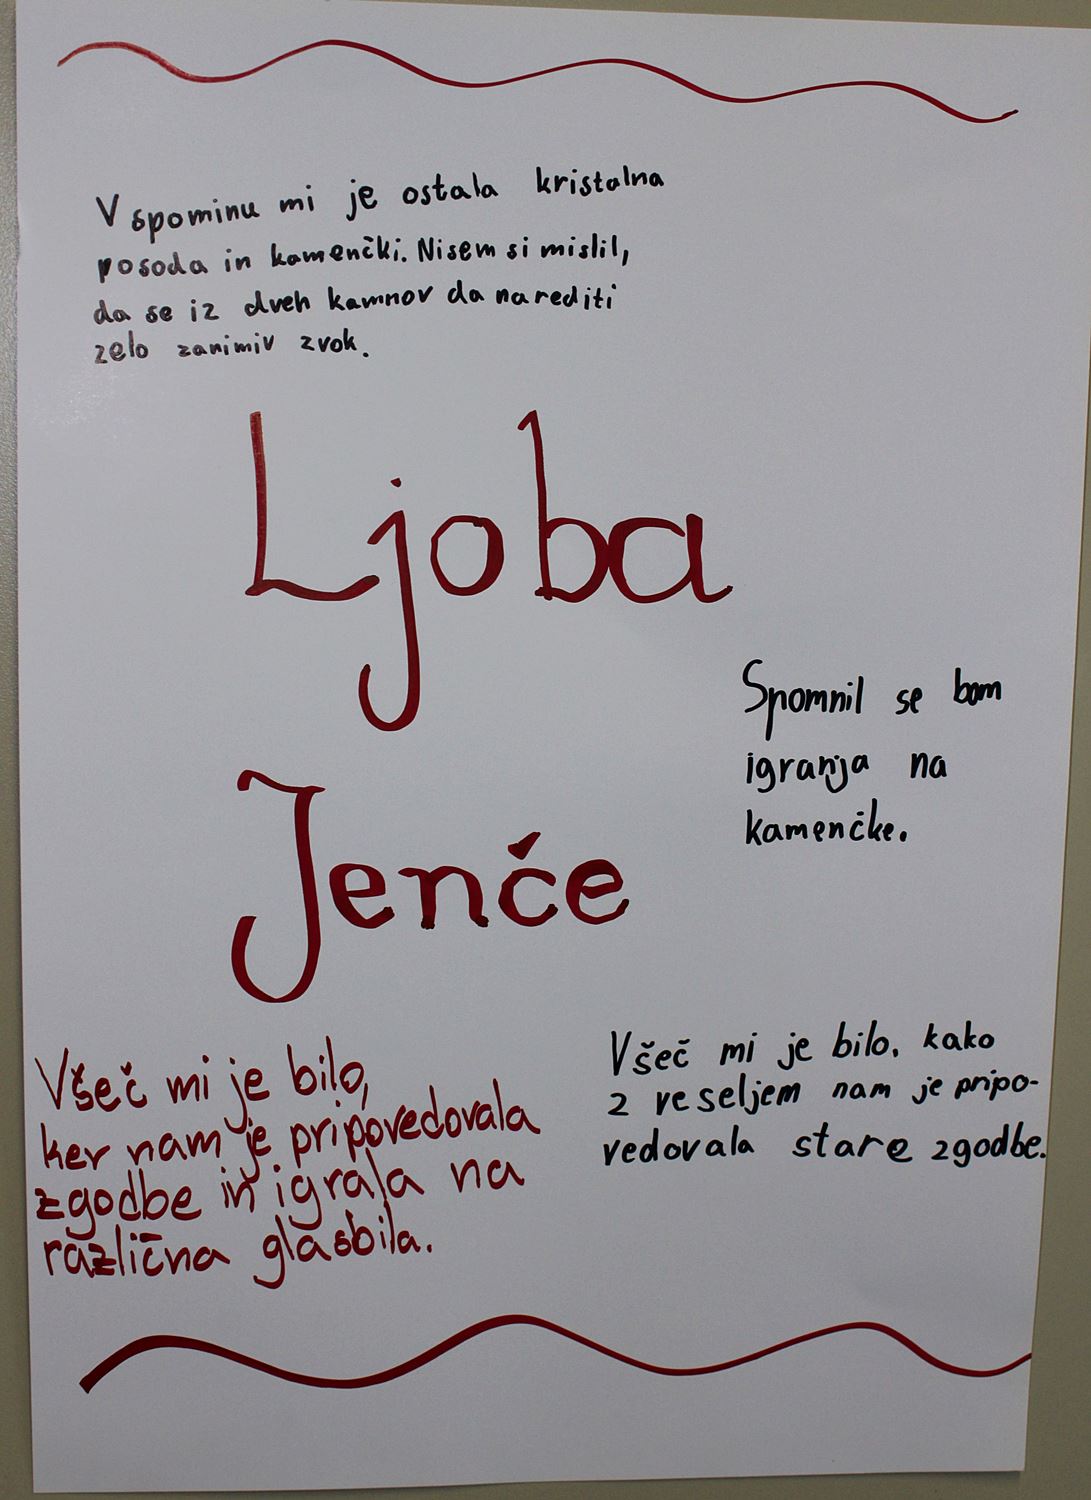 V spominu mi je ostala kristalna
posoda in kamenčki. Nisem si mislil,
da se iz dveh kamnov da narediti
zelo zanimiv zvok.
Ljoba
Jenče
Spomnil se bom
igranja na
kamenčke.
Všeč mi je bilo,
ker nam je pripovedovala
zgodbe in igrala na
različna glasbila.
Všeč mi je bilo, kako
z veseljem nam je pripo-
vedovala stare zgodbe.